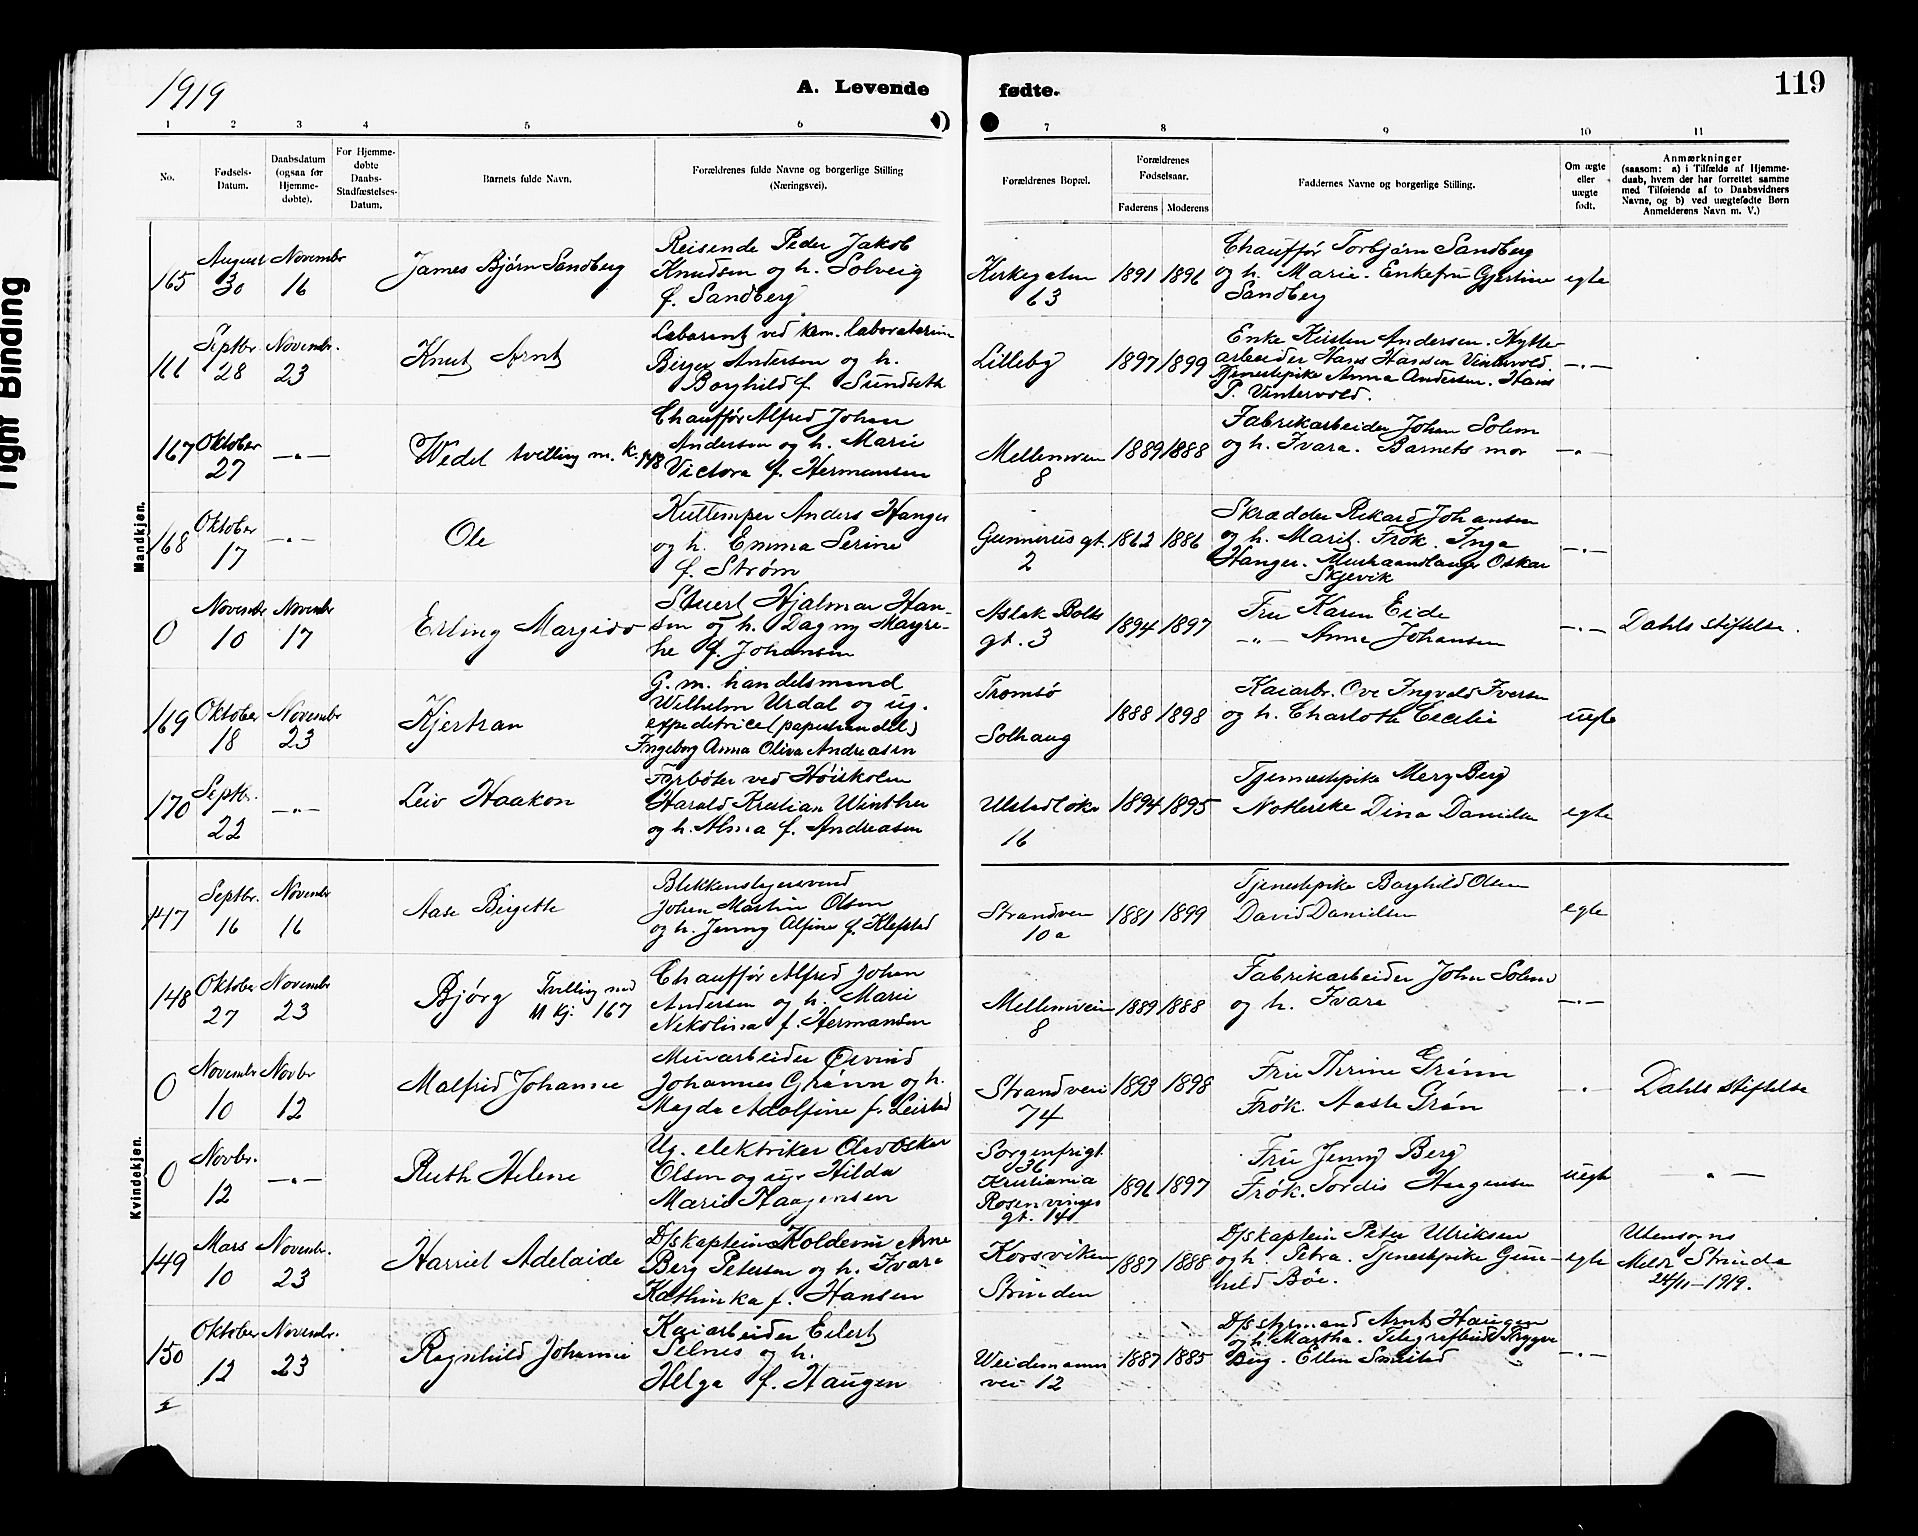 Tight Binding
1919
A. Levende
fødte.
119
1 2 3 4 5 6 7 8 9 10 11
No.
Fødsels-Datum.
Daabsdatum (ogsaa før Hjemme-døbte).
For Hjemme-døbte Daabs-Stadfæstelses-Datum.
Barnets fulde Navn.
Forældrenes fulde Navne og borgerlige Stilling (Næringsvei).
Forældrenes Bopæl.
Forældrenes Fødselsaar.
Faderens Moderens
Faddernes Navne og borgerlige Stilling.
Om ægte eller uægte født.
Anmærkninger
(saasom: a) i Tilfælde af Hjemme-
daab, hvem der har forrettet samme
med Tilføiende af to Daabsvidners
Navne, og b) ved uægtefødte Børn
Anmelderens Navn m. V.)
Mandkjøn.
165
August 30
Novembr 16
James Bjørn Sandberg
Reisende Peder Jakob
Knudsen og h. Solveig
f. Sandberg
Kirkegaten
63
1891 1896
Chauffør Torbjørn Sandberg
og h. Marie. Enkefru Gjertine
Sandberg
egte
Septbr. 28
Novembr. 23
Knut Arnt
Laborant ved kem. laboratorium
Birger Andersen og h.
Borghild f. Sundseth
Lilleby
1897 1899
Enke Kirsten Andersen. Hytte-
arbeider Hans Hansen Vintervold.
Tjenestepike Anna Andersen. Hans
P. Vintervold.
-"-
167
Oktober 27
-"-
Wedel tvilling m. K. 148
Chauffør Alfred Johan
Andersen og h. Marie
Victora f. Hermansen
Mellemveien
8
1889 1888
Fabrikarbeider Johan Solem
og h. Ivara. Barnets mor
-"-
168
Oktober 17
-"-
Ole
Anders Hanger
og h. Emma Serine
f. Strøm
Gunnerus gt.
2
1862 1886
Skrædder Rikard Johansen
og h. Marit. Frøk. Inga
Hanger. Murhaandlanger Oskar
Skjevik
-"-
0
Novembr 10
Novembr 17
Erling Margido
Stuert Hjalmar Han-
sen og h. Dagny Mayre-
the f. Johansen
Aslak Bolts
gt. 3
1894 1897
Fru Karen Eide
-"- Anna Johansen
-"-
Dahls stiftelse.
169
Oktober 18
Novembr 23
Kjertran
G. m. handelsmand
Wilhelm Urdal og ug.
expeditrice (papirhandel)
Ingeborg Anna Oliva Andreasen
Tromsø
Solhaug
1888 1898
Kaiarb. Ove Ingvald Iversen
og h. Charlotte Cecilie
uegte
170
Septbr. 22
-"-
Leiv Haakon
Fyrbøter ved Høiskolen
Harald Kristian Winther
og h. Alma f. Andreasen
Ulstadløkk
16
1894 1895
Tjenestepike Mery Berg
Noterske Dina Danielsen
egte
Kvindekjøn.
147
Septbr. 16
Novembr 16
Aase Birgette
Blikkenslagersvend
Johan Martin Olsen
og h. Jenny Alfine f. Klefstad
Strandvein
10a
1881 1899
Tjenestepike Borghild Olsen
David Danielsen
egte
148
Oktober 27
Novembr 23
Bjørg Tvilling med
M kj. 167
Chauffør Alfred Johan
Andersen og h. Marie
Nikolina f. Hermansen
Mellemveien
8
1889 1888
Fabrikarbeider John Solem
og h. Ivara
-"-
0
Novembr 10
Novbr 12
Malfrid Johanne
Murarbeider Øivind
Johannes Grønn og h.
Magda Adolfine f. Leistad
Strandveien
74
1893 1898
Fru Thrine Grønn
Frøk. Aasta Grøn
-"-
Dahls stiftelse
0
Novbr. 12
-"-
Ruth Helene
Ug. elektriker Olav Oskar
Olsen og sye Hilda
Marie Haagensen
Sorgenfrigt.
36
Kristiania
Rosenvinges
gt. 14
1896 1897
Fru Jenny Berg
Frøk. Tordis Haagensen
uegte
-"-
149
Mars 10
Novembr. 23
Harriet Adelaide
D/s kaptein Koldevin Arne
Berg Petersen og h. Ivara
Kathinka f. Hansen
Korsviken
Strinden
1887 1888
D/s kaptein Peter Ulriksen
og h. Petra. Tjenestepike Gun-
hild Bøe.
egte
Utensogns
Meldt Strinda
24/11-1919.
150
Oktober 12
Novembr. 23
Ragnhild Johanne
Kaiarbeider Eilert
Selnes og h.
Helga f. Haugen
Weidemanns
vei 12
1887 1885
D/s styrmand Arnt Haugen
og h. Martha. Telegrafbud Trygve
Berg. Ellen Smistad
-"-